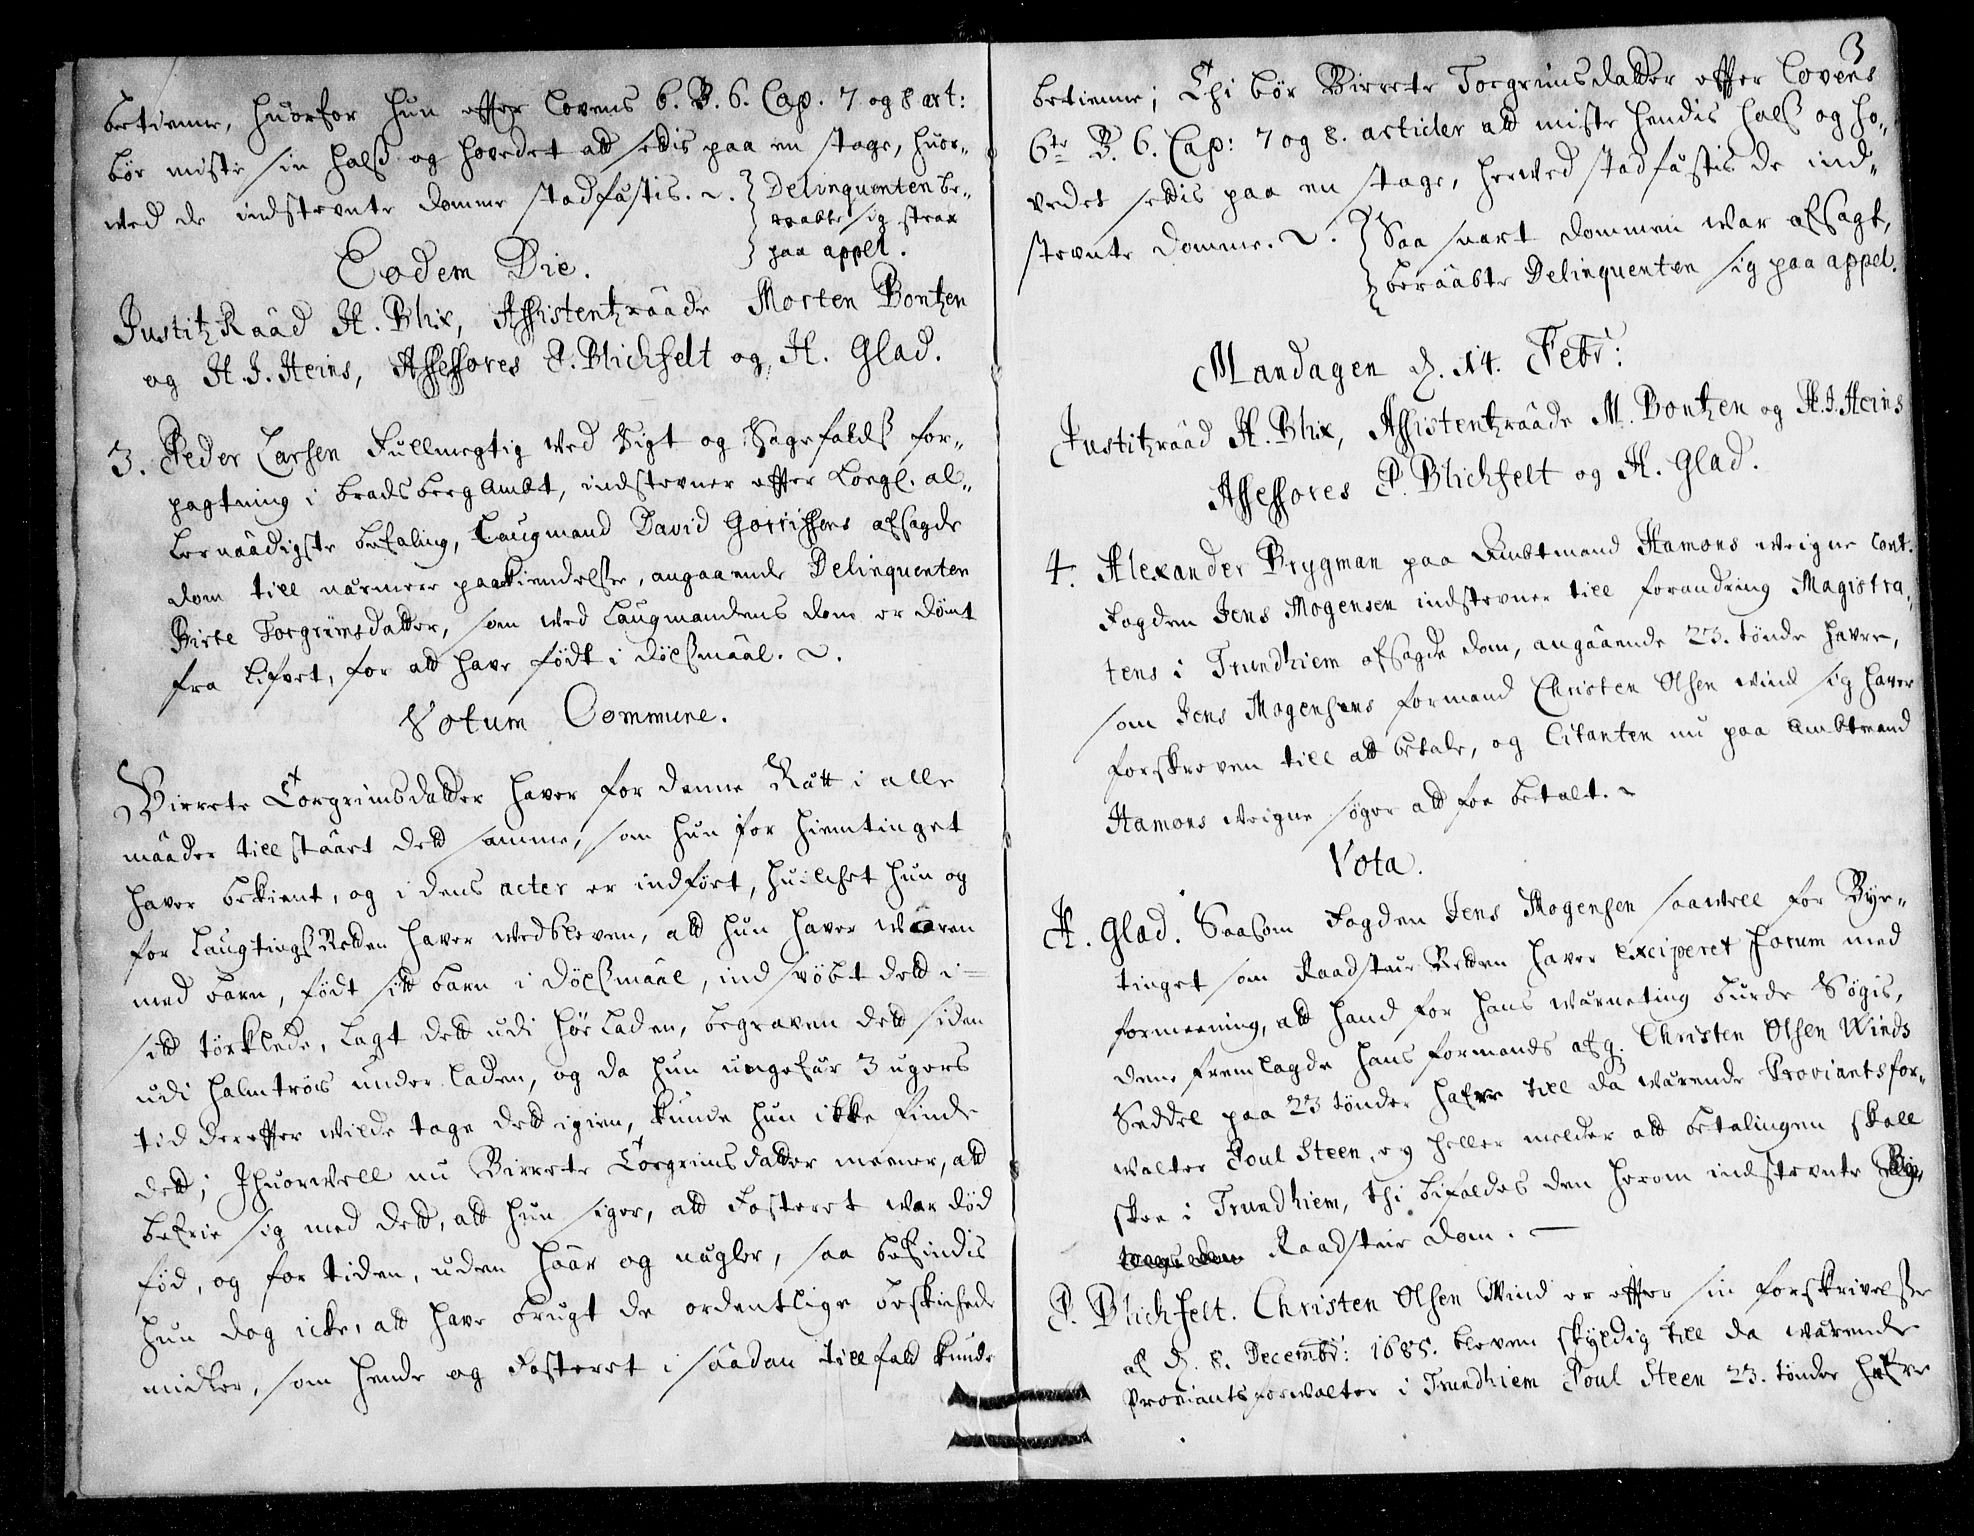 betienne, huorfor hun effter Lovens 6. B. 6. Cap. 7 og 8 art:
bör miste sin halß og hovedet att settis paa en stage, huor-
ved de indstevnte domme stadfästis.
Delinquenten be-
raabte sig strax
paa appel.
Eodem Die.
Justitz Raad H. Blix, Assistentzraade Morten Bontzen
og H. J. Heins, Assessores P. Blichfelt og H. Glad.
3. Peder Larsen Fullmegtig ved Sigt og Sagefaldß for-
pagtning i Bradsberg Ambt, indstevner effter Kongl. al-
lernaadigste befaling, Laugmand David Gorrissens afsagde
dom till närmere paakiendelse, angaaende Delinquenten
Birte Torgrimsdatter, som ved Laugmandens dom er dömt
fra lifvet, for att have födt i dölgßmaal.
Votum Commune.
Birrete Torgrimsdatter haver for denne Rätt i alle
maader tillstaaet dett samme, som hun for hiemtinget
haver bekient, og i dens acter er indfört, huilchet hun og
for LaugtingßRetten haver vedbleven, att hun haver waren
med barn, födt sitt barn i dölgßmaal, indsvöbt dett i
sitt törklede, lagt dett udi höe Laden, begraven dett siden
udi halmtröis under Laden, og da hun ungefär 3 ugers
tid dereffter vilde tage dett igien, kunde hun ikke finde
dett; Ihuorvell nu Birrete Torgrimsdatter meener, att
befrie sig med dett, att hun siger, att Fosteret var död
föd, og for tiden, uden haar og nagler, saa befindis
hun dog icke, att have brugt de ordentlige beskichede
midler, som hende og Fosteret i saadan tillfald kunde
3
betienne; Thi bör Birrete Torgrimsdatter effter Lovens
6te B. 6. Cap: 7 og 8. articler att miste hendis halß og ho-
vedet settis paa en stage, herved stadfästis de ind-
stevnte domme.
Saa snart dommen war afsagt,
beraabte Delinquenten sig paa appel.
Mandagen d. 14. Febr:
Justitzraad H. Blix, Assistentzraade M. Bontzen og H. J. Heins
Assessores P. Blichfelt og H. Glad.
4. Alexander Brygman paa Ambtmand Hamons veigne cont.
Fogden Jens Mogensen indstevner till forandring Magistra-
tens i Trundhiem afsagde dom, angaaende 23. tönde havre,
som Jens Mogensens formand Christen Olsen Wind sig haver
forskreven till att betale, og Citanten nu paa Ambtmand
Hamons veigne söger att faa betalt.
Vota.
H. Glad. Saasom Fogden Jens Mogensen saavell for Bye-
tinget som Raadstue Retten haver exciperet forum med
formeening, att hand for hans värneting burde Sögis,
dene fremlagde hans formands afg. Christen Olsen Winds
Seddel paa 23 tönder hafre till da värende Proviantsfor-
valter Poul Steen, ey heller melder att betalingen skall
skee i Trundhiem, thi bifaldes den herom indstevnte
Raadstue dom.
P. Blichfelt. Christen Olsen Wind er effter sin forskrivelse
af d. 8. Decembr: 1685. bleven skyldig till da värende
Proviantsforvalter i Trundhiem Poul Steen 23. tönder hafre